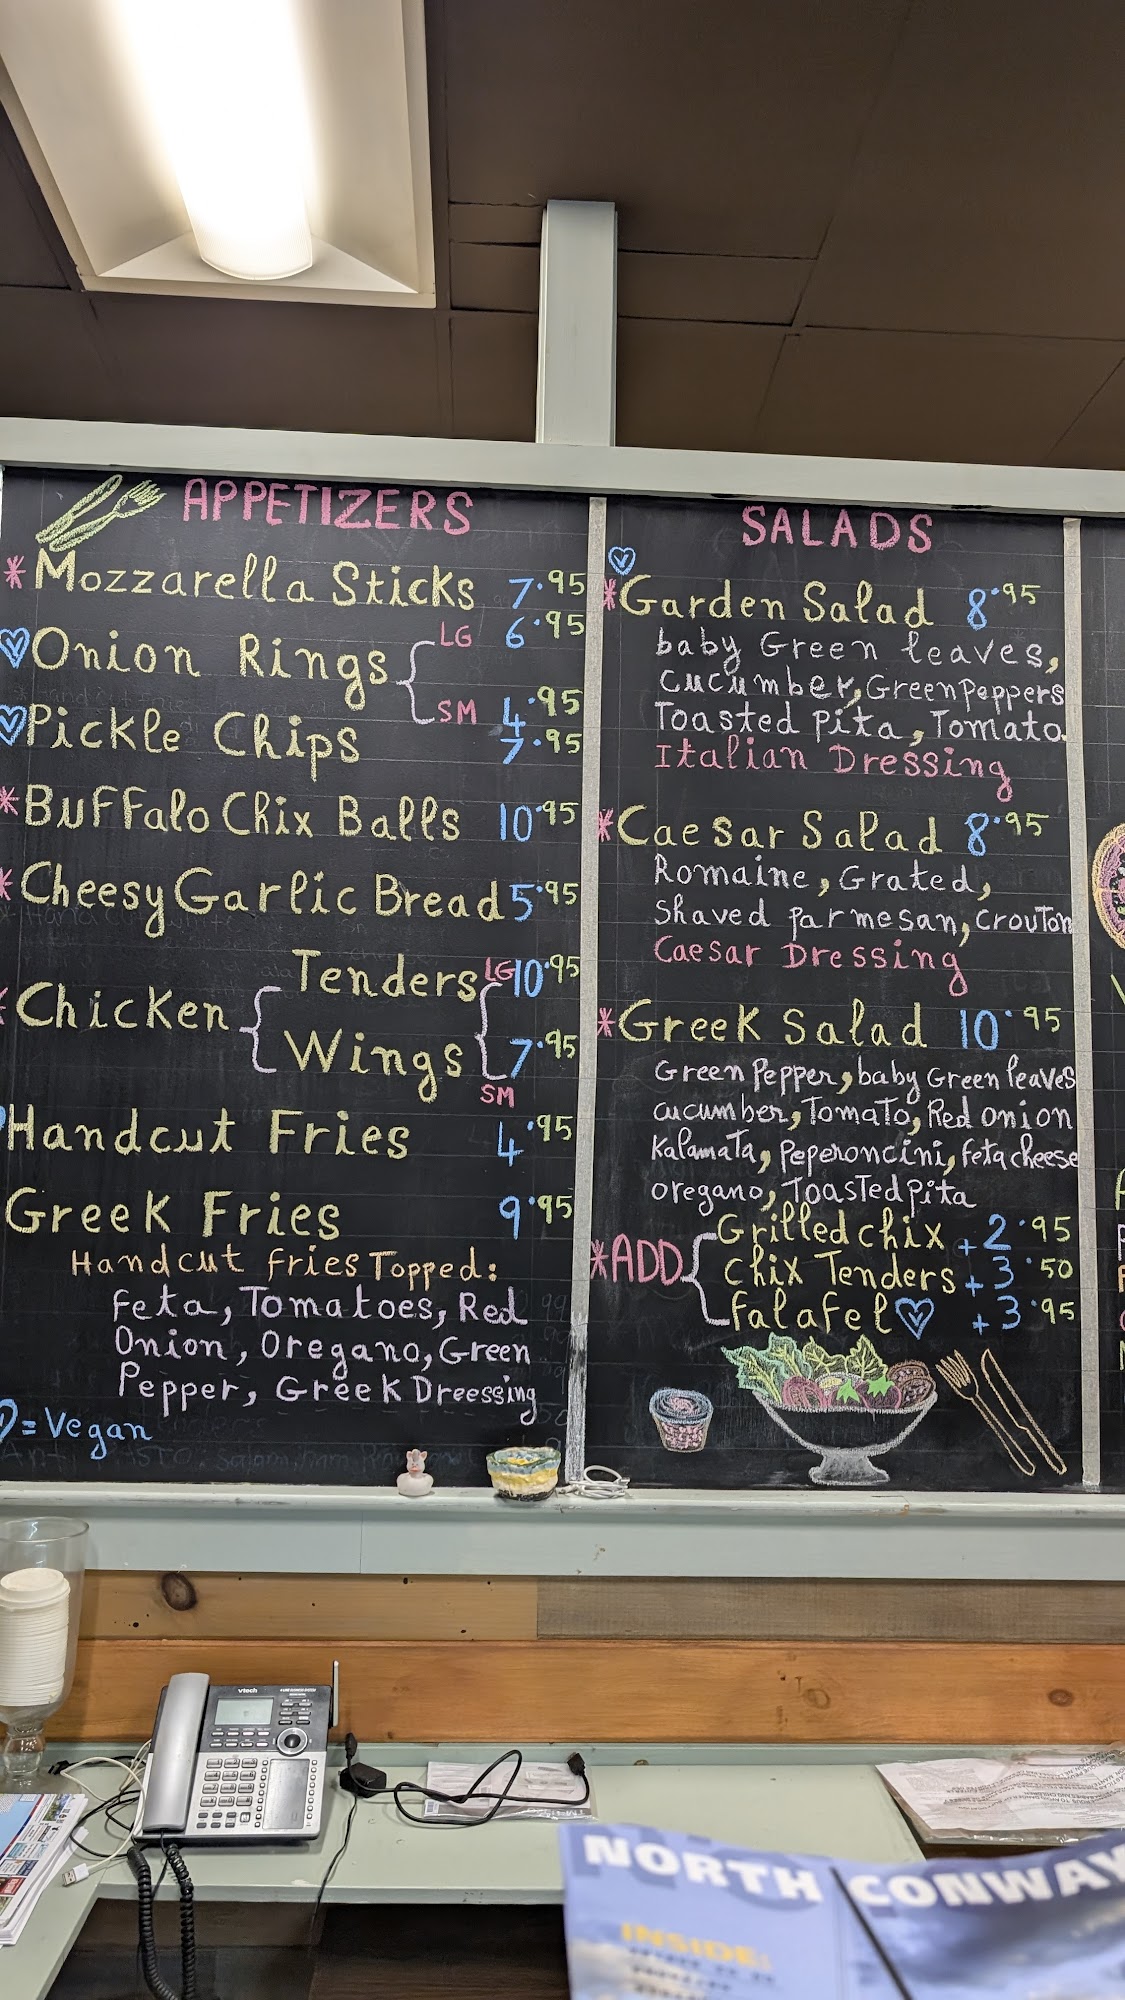 APPETIZERS
* Mozzarella Sticks 7.95
Onion Rings LG 6.95
SM 4.95
Pickle Chips 7.95
* Buffalo Chix Balls 10.95
* Cheesy Garlic Bread 5.95
* Chicken Tenders LG 10.95
Wings 7.95
SM
Handcut Fries 4.95
Greek Fries 9.95
Handcut fries Topped:
Feta, Tomatoes, Red
Onion, Oregano, Green
Pepper, Greek Dreessing
= Vegan
SALADS
* Garden Salad 8.95
baby Green leaves,
cucumber, Green Peppers
Toasted Pita, Tomato
Italian Dressing
* Caesar Salad 8.95
Romaine, Grated,
shaved parmesan, crouton
Caesar Dressing
* Greek Salad 10.95
Green Pepper, baby Green leaves
cucumber, Tomato, Red onion
Kalamata, Peperoncini, feta cheese
oregano, Toasted pita
* ADD Grilled chix + 2.95
chix Tenders + 3.50
falafel + 3.95
vtech
NORTH CONWAY
INSIDE: